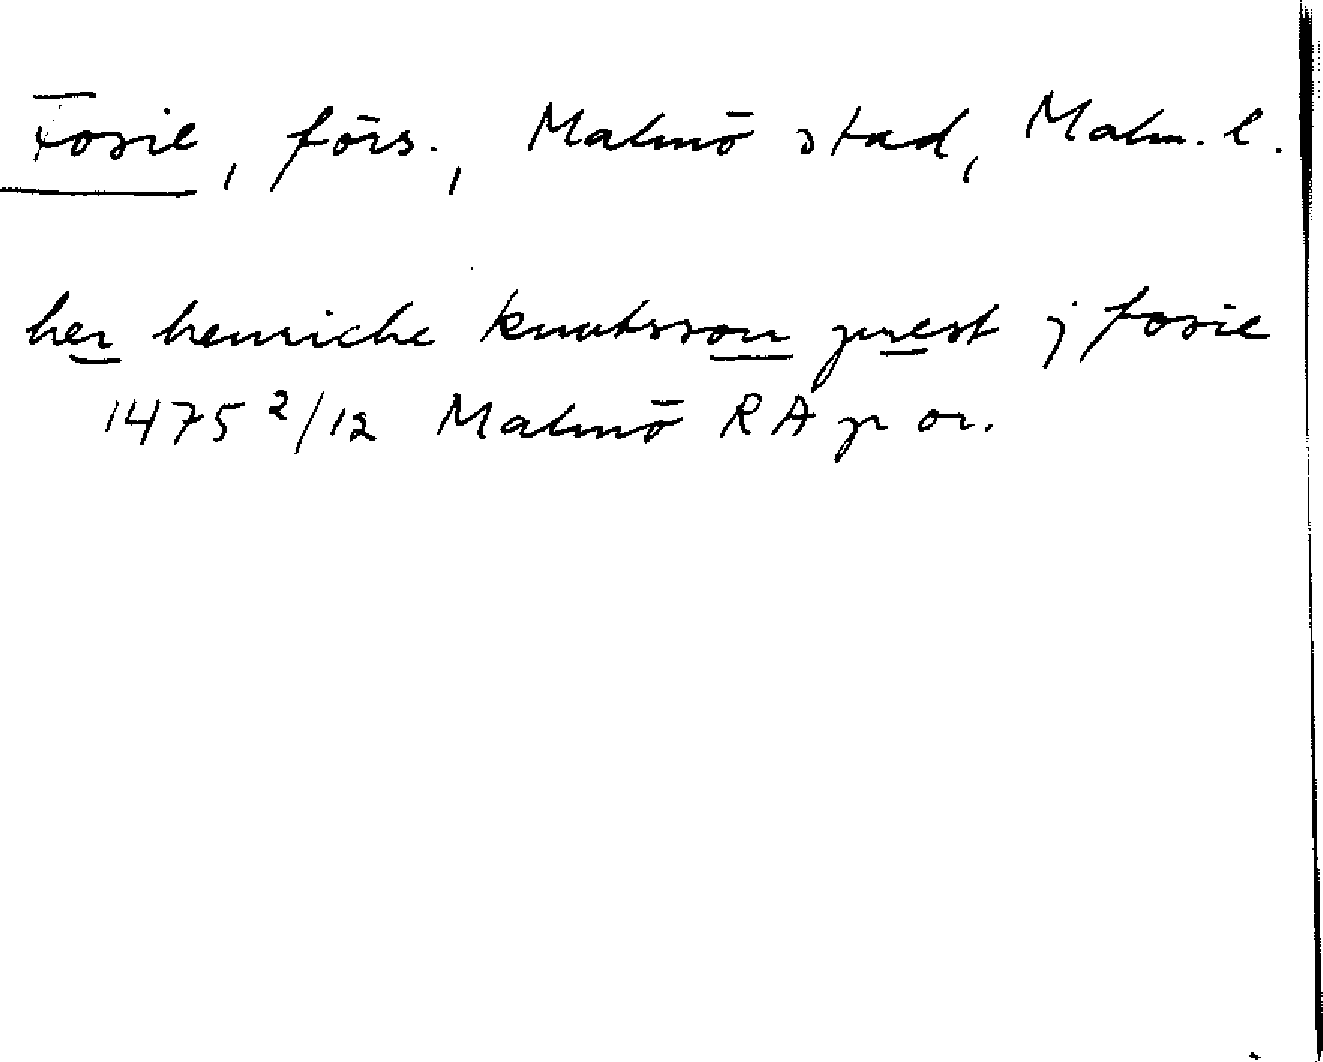 Fosie, förs., Malmö stad, Malm. l.
her henriche knutsson prest j fosie
1475 2/12 Malmö RA p or.